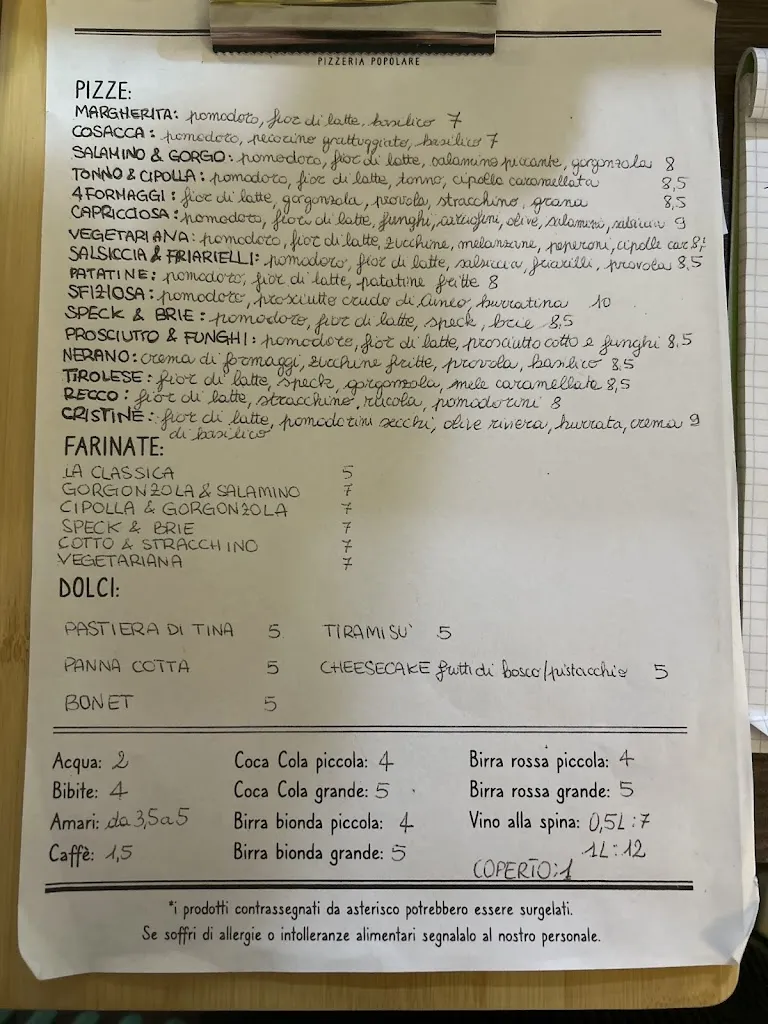 PIZZERIA POPOLARE
PIZZE:
MARGHERITA: pomodoro, fior di latte, basilico 7
COSACCA: pomodoro, pecorino grattuggiato, basilico 7
SALAMINO & GORGO: pomodoro, fior di latte, salamino piccante, gorgonzola 8
TONNO & CIPOLLA: pomodoro, fior di latte, tonno, cipolla caramellata 8,5
4 FORMAGGI: fior di latte, gorgonzola, provola, stracchino, grana 8,5
CAPRICCIOSA: pomodoro, fior di latte, funghi, carciofini, olive, salamino, salsiccia 9
VEGETARIANA: pomodoro, fior di latte, zucchine, melanzane, peperoni, cipolle car
SALSICCIA & FRIARIELLI: pomodoro, fior di latte, salsiccia, friarilli, provola 8,5
PATATINE: pomodoro, fior di latte, patatine fritte 8
SFIZIOSA: pomodoro, prosciutto crudo di Cuneo, burratina 10
SPECK & BRIE: pomodoro, fior di latte, speck, brie 8,5
PROSCIUTTO & FUNGHI: pomodoro, fior di latte, prosciutto cotto e funghi 8,5
NERANO: crema di formaggi, zucchine fritte, provola, basilico 8,5
TIROLESE: fior di latte, speck, gorgonzola, mele caramellate 8,5
RECCO: fior di latte, stracchino, rucola, pomodorini 8
CRISTINE: fior di latte, pomodorini secchi, olive riviera, burrata, crema 9
di basilico
FARINATE:
LA CLASSICA 5
GORGONZOLA & SALAMINO 7
CIPOLLA & GORGONZOLA 7
SPECK & BRIE 7
COTTO & STRACCHINO 7
VEGETARIANA 7
DOLCI:
PASTIERA DI TINA 5 TIRAMISU' 5
PANNA COTTA 5 CHEESECAKE frutti di bosco/pistacchio 5
BONET 5
Acqua: 2 Coca Cola piccola: 4 Birra rossa piccola: 4
Bibite: 4 Coca Cola grande: 5 Birra rossa grande: 5
Amari: da 3,5 a 5 Birra bionda piccola: 4 Vino alla spina: 0,5L: 7
Caffè: 1,5 Birra bionda grande: 5 1L: 12
COPERTO: 1
*i prodotti contrassegnati da asterisco potrebbero essere surgelati.
Se soffri di allergie o intolleranze alimentari segnalalo al nostro personale.